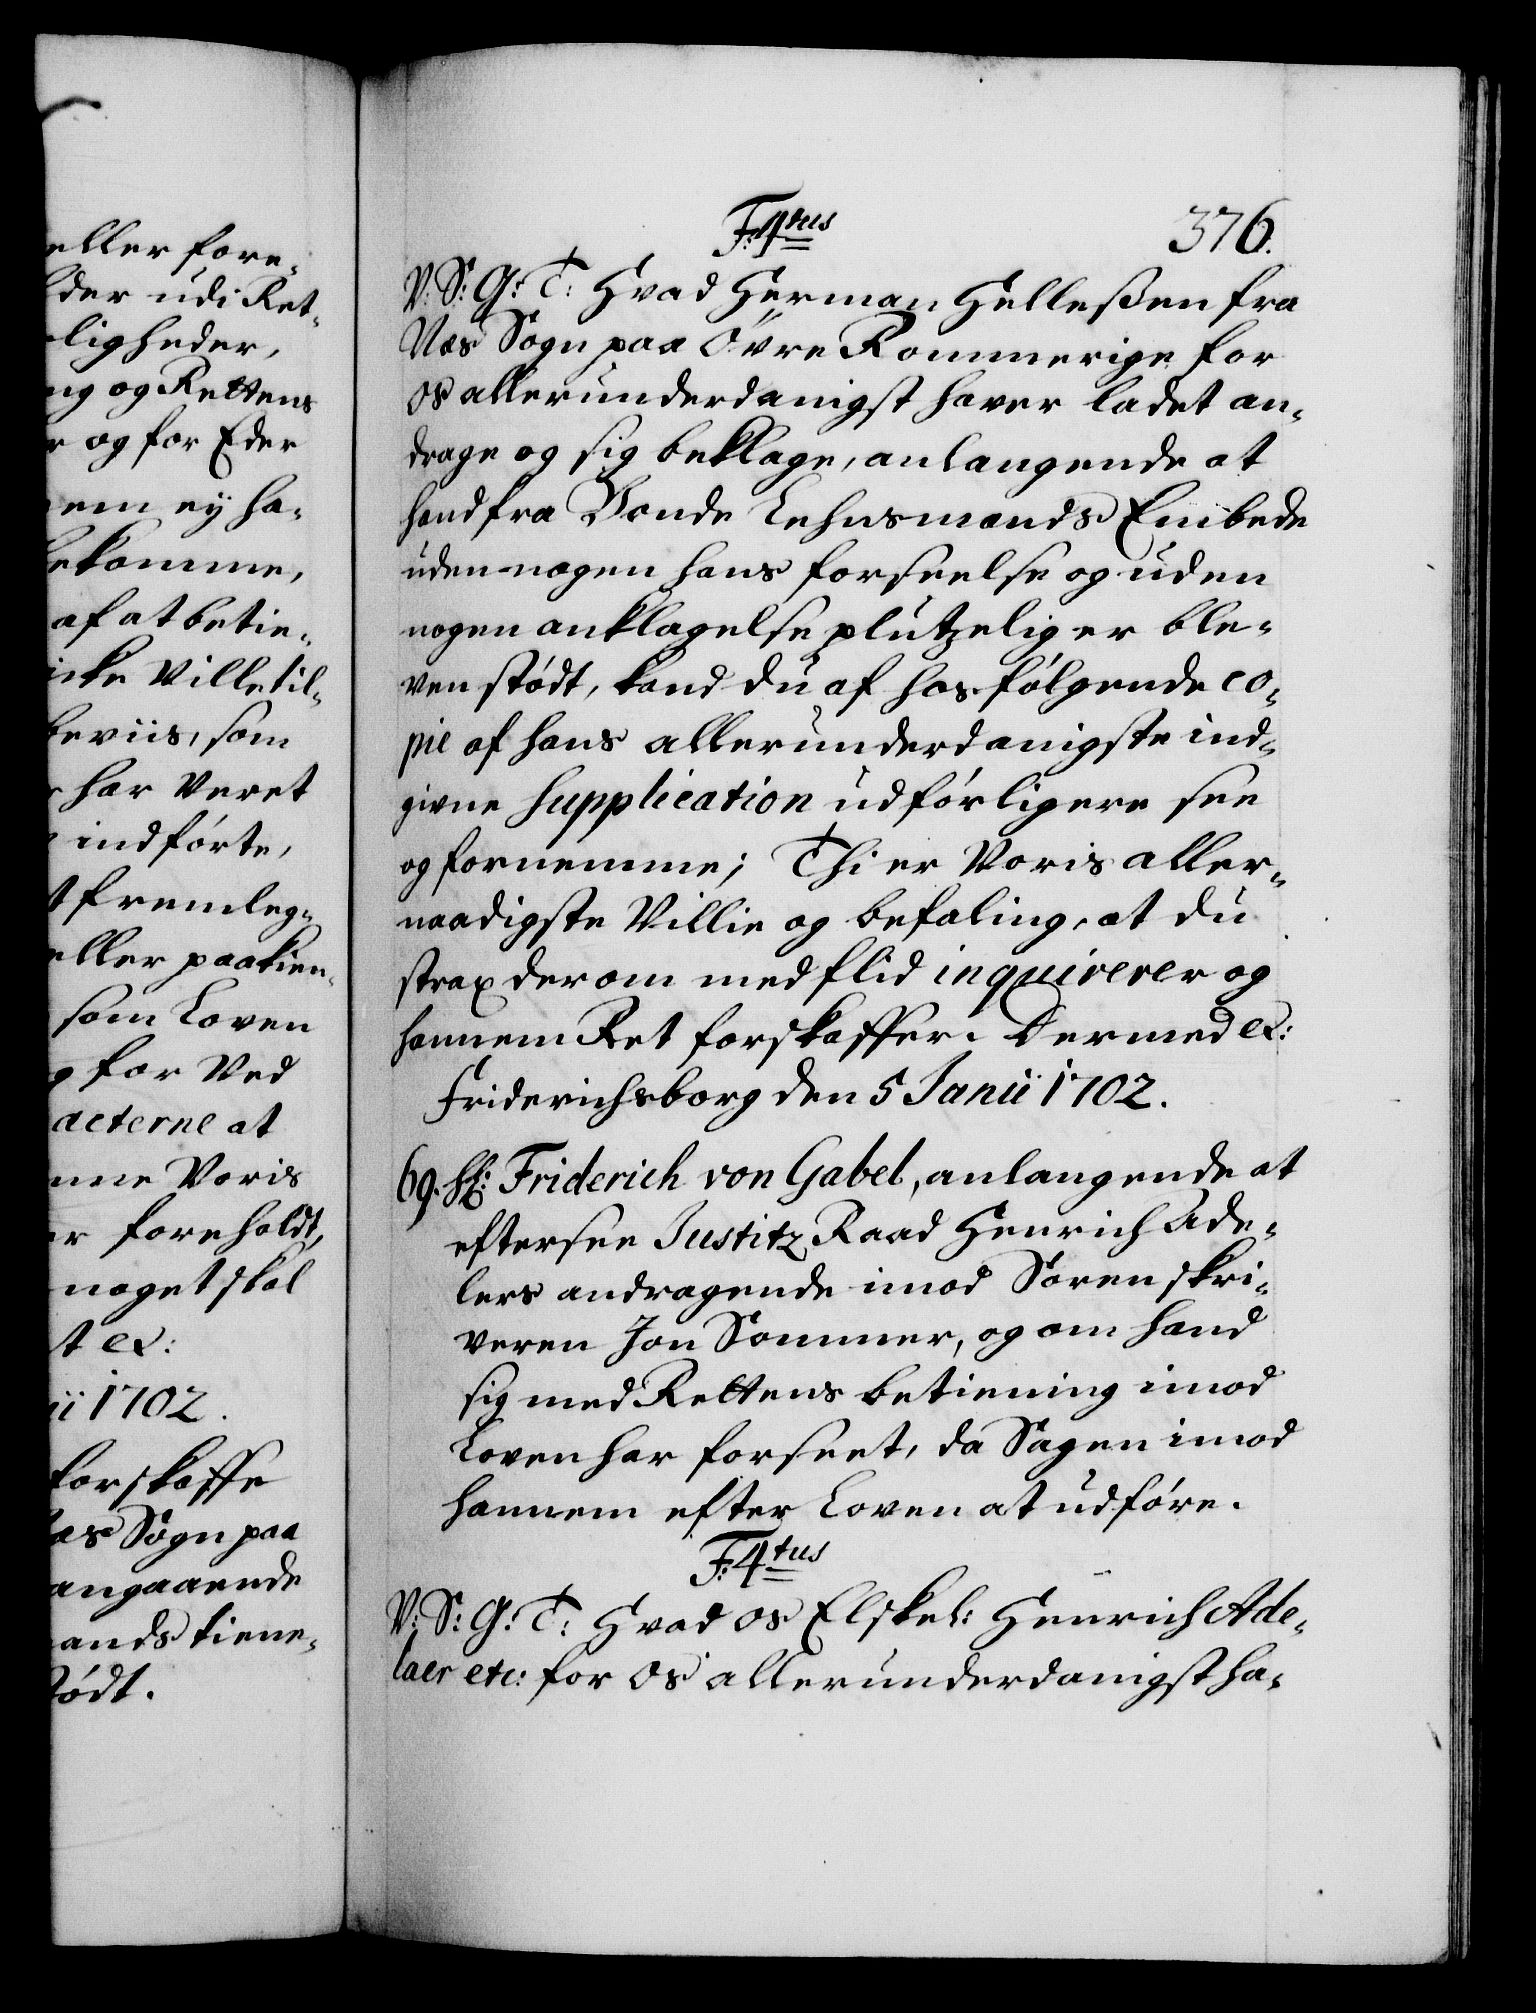 eller fore-
lder udi Ret-
ligheder,
ng og Rettens
r og for Eder
nem ej ha-
bekomme,
af at betie-
icke Ville til-
beviis, som
r har Veret
indførte,
t fremleg-
eller paakien-
som Loven
g for Ved
acterne at
nne Voris
er foreholdt,
noget skal
t ex:
ii 1702.
forskaffe
Næs Sogn paa
angaaende
mands tiene-
stødt.
F:4tus 376.
V: S: G: T: Hvad Herman Helleßen fra
Næs Sogn paa Øvre Rommerige for
os allerunderdanigst haver ladet an-
drage og sig beklage, anlangende at
hand fra Bonde Lehnsmands Embede
uden nogen hans forseelse og uden
nogen anklagelse plutzelig er ble-
ven stødt, kand du af hosfølgende co-
pie af hans allerunderdanigste ind-
givne Supplication udførligere see
og fornemme; Thi er Voris aller-
naadigste Villie og befaling, at du
strax derom med flid inquirerer og
hannem Ret forskaffer. Dermed ex:
Friderichsborg den 5 Junii 1702.
69. Hr: Friderich von Gabel, anlangende at
eftersee Justitz Raad Henrich Ade-
lers andragende imod Soren skri-
veren Jon Sommer, og om hand
sig med Rettens betiening imod
Loven har forseet, da Sagen imod
hannem efter Loven at udføre.
F:4tus
V: S: G: T: Hvad os Elskel: Henrich Ade-
laer etc: for Os allerunderdanigst ha-